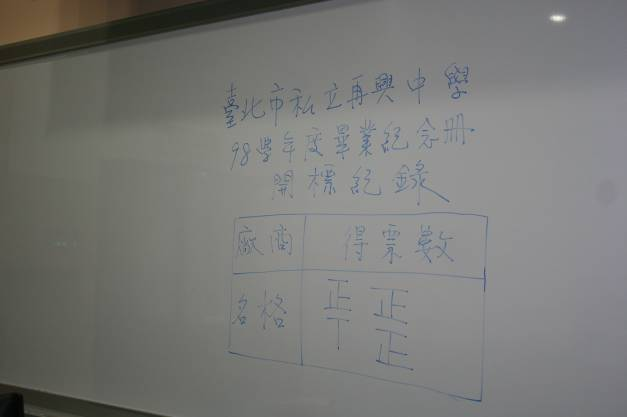 臺北市私立再興中學
98學年度畢業紀念冊
開標記錄
廠商 得票數
名格 正 正
丅 正